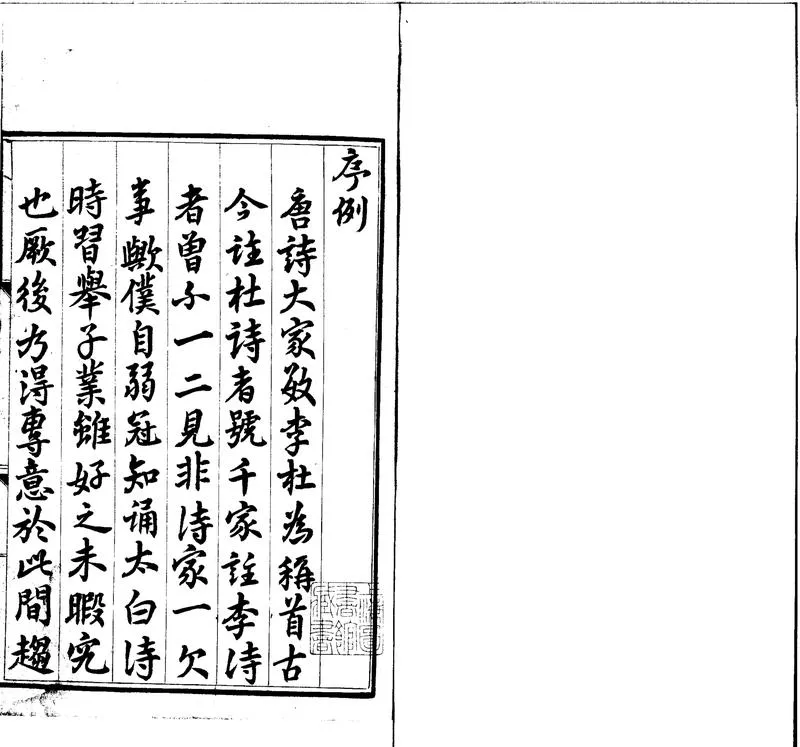 序例
唐詩大家數李杜為稱首古
今註杜詩者號千家註李詩
者曾不一二見非詩家一欠
事歟僕自弱冠知誦太白詩
時習舉子業雖好之未暇究
也厥後乃得專意於此間趨
書館
藏書